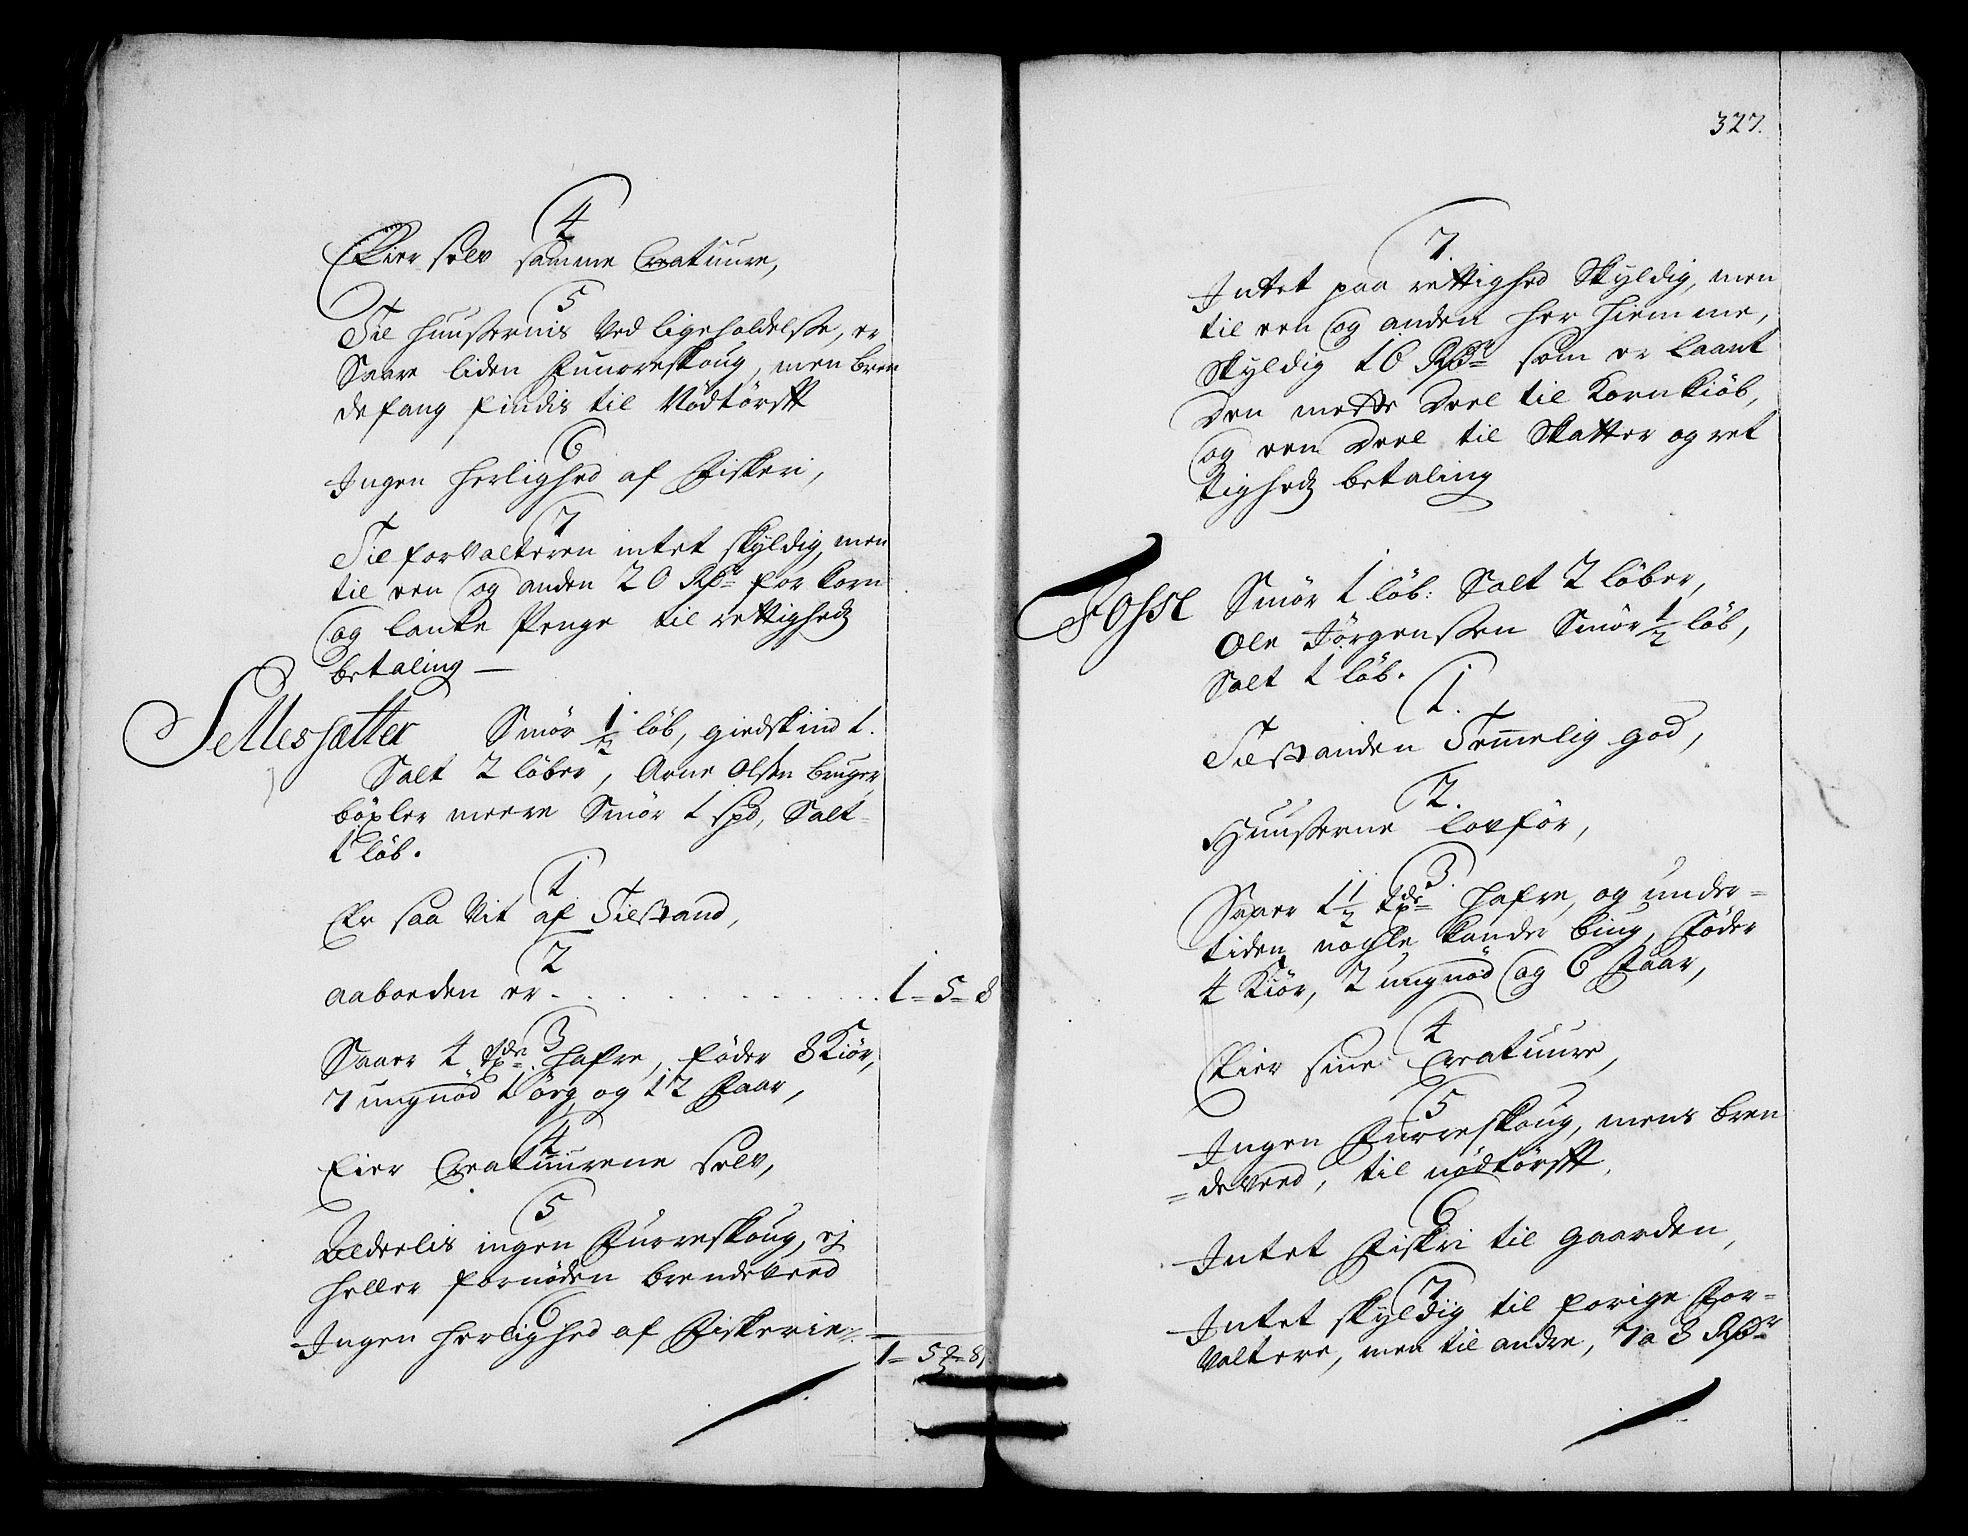 4
Eier selv samme Creatuure,
5
Til huusernis Ved ligeholdelse, er
Saare liden Fuureskoug, men bren
defang findis til Nödtörfft
6
Ingen herlighed af Fiskeri,
7
Til forvalteren intet skyldig, men
til een og anden 20 Rdr for korn
og laante Penge til rettigheds
betaling —
Settessætter Smör 1/2 löb, giedskind 1.
Salt 2 löber, Arne Olsen bruger
böxler meere Smör 1 spd, Salt
1 löb.
1
Er saa Vit af Tilstand,
2
aaboeden er . . . . . . . . . 1 = 5 = 8
3
Saaer 4 tdr hafre, föder 8 Kiör,
7 ungnöd 1 örg og 12 Faar,
4
Eier Creatuurene selv,
5
Ingen Fuureskoug, ej
heller fornöden brendeveed
6
Ingen herlighed af Fiskerie
1 = 5 = 8
327.
7.
Intet paa rettighed Skyldig, men
til een og anden her hiemme,
Skyldig 10 Rdr som er laant
den meste Deel til Kornkiöb,
og een Deel til Skatter og ret
tigheds betaling
Fosse Smör 1 löb: Salt 2 löber,
Ole Jörgensen Smör 1/2 löb,
Salt 1 löb.
1.
Tilstanden Temmelig god,
2.
Huuserne lovför,
3.
Saaer 1 1/2 tdr hafre, og under-
tiden nogle kander biug, Föder
4 Kiör, 2 ungnöd og 6 Faar,
4
Eier sine Creatuure,
5
Ingen Fuureskoug, mens bren
= deveed, til nödtörfft,
6
Intet Fiskri til gaarden,
7
Intet skyldig til forige For-
valtere, men til andre, 7 a 8 Rdr